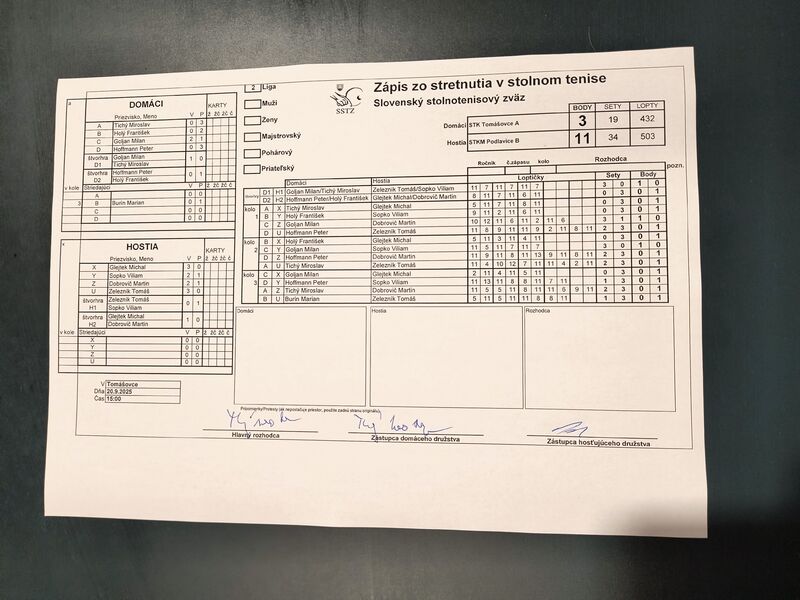 2 Liga
Muži
Ženy
Majstrovský
Pohárový
Priateľský
SSTZ
Zápis zo stretnutia v stolnom tenise
Slovenský stolnotenisový zväz
BODY SETY LOPTY
Domáci STK Tomášovce A 3 19 432
Hostia STKM Podlavice B 11 34 503
Ročník č.zápasu kolo Rozhodca
DOMÁCI
Priezvisko, Meno V P KARTY
ž žč žč č
A Tichý Miroslav 0 3
B Holý František 0 2
C Goljan Milan 2 1
D Hoffmann Peter 0 3
štvorhra D1 Goljan Milan 1 0
Tichý Miroslav
štvorhra D2 Hoffmann Peter 0 1
Holý František
v kole Striedajúci
A 0 0
3 B Burin Marian 0 1
C 0 0
D 0 0
HOSTIA
Priezvisko, Meno V P KARTY
ž žč žč č
X Glejtek Michal 3 0
Y Sopko Viliam 2 1
Z Dobrovič Martin 2 1
U Železník Tomáš 3 0
štvorhra H1 Železník Tomáš 0 1
Sopko Viliam
štvorhra H2 Glejtek Michal 1 0
Dobrovič Martin
v kole Striedajúci
X 0 0
Y 0 0
Z 0 0
U 0 0
V Tomášovce
Dňa 20.9.2025
Čas 15:00
Domáci Hostia Loptičky Sety Body pozn.
D1 H1 Goljan Milan/Tichý Miroslav Železník Tomáš/Sopko Viliam 11 7 11 7 11 7 3 0 1 0
D2 H2 Hoffmann Peter/Holý František Glejtek Michal/Dobrovič Martin 8 11 7 11 6 11 0 3 0 1
kolo 1 A X Tichý Miroslav Glejtek Michal 5 11 7 11 8 11 0 3 0 1
B Y Holý František Sopko Viliam 9 11 2 11 6 11 0 3 0 1
C Z Goljan Milan Dobrovič Martin 10 12 11 6 11 2 11 6 3 1 1 0
D U Hoffmann Peter Železník Tomáš 11 8 9 11 11 9 2 11 8 11 2 3 0 1
kolo 2 B X Holý František Glejtek Michal 5 11 3 11 4 11 0 3 0 1
C Y Goljan Milan Sopko Viliam
D Z Hoffmann Peter Dobrovič Martin 11 9 11 8 11 13 9 11 8 11 2 3 0 1
A U Tichý Miroslav Železník Tomáš 11 4 10 12 7 11 11 4 2 11 2 3 0 1
kolo 3 C X Goljan Milan Glejtek Michal 2 11 4 11 5 11 0 3 0 1
D Y Hoffmann Peter Sopko Viliam 11 13 11 8 8 11 7 11 1 3 0 1
A Z Tichý Miroslav Dobrovič Martin 11 5 5 11 8 11 11 6 9 11 2 3 0 1
B U Burin Marian Železník Tomáš 5 11 5 11 11 8 8 11 1 3 0 1
Domáci
Hostia
Rozhodca
Pripomienky/Protesty (ak nepostačuje priestor, použite zadnú stranu originálu)
Hlavný rozhodca
Zástupca domáceho družstva
Zástupca hosťujúceho družstva